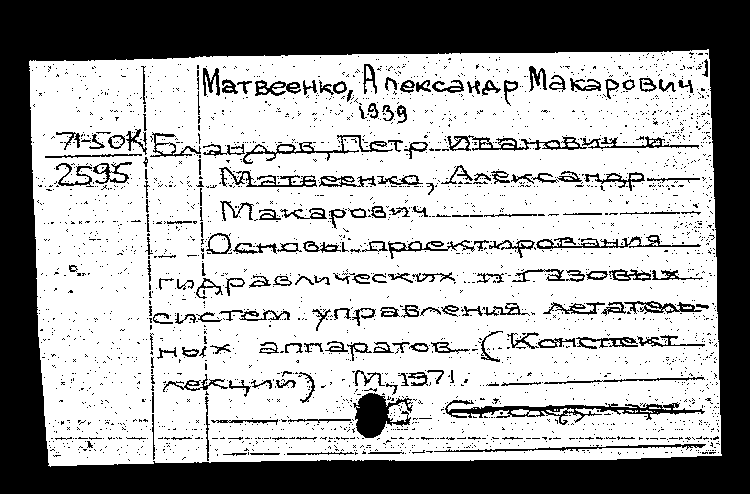 Матвеенко, Александр Макарович.
1939
71-50К Бландов, Петр Иванович и
2595 Матвеенко, Александр
Макарович
Основы проектирования
гидравлических и газовых
систем управления летатель-
ных аппаратов (Конспект
лекций). М., 1971.